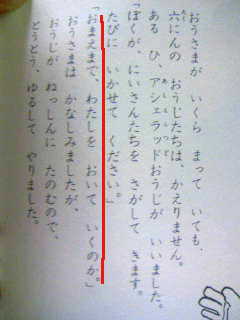 おうさまが いくら まって いても、
六にんの おうじたちは、かえりません。
ある ひ、アシェラッドおうじが いいました。
「ぼくが、にいさんたちを さがして きます。
たびに いかせて ください。」
「おまえまで、わたしを おいて いくのか。」
おうさまは かなしみましたが、
おうじが ねっしんに たのむので、
とうとう、ゆるして やりました。